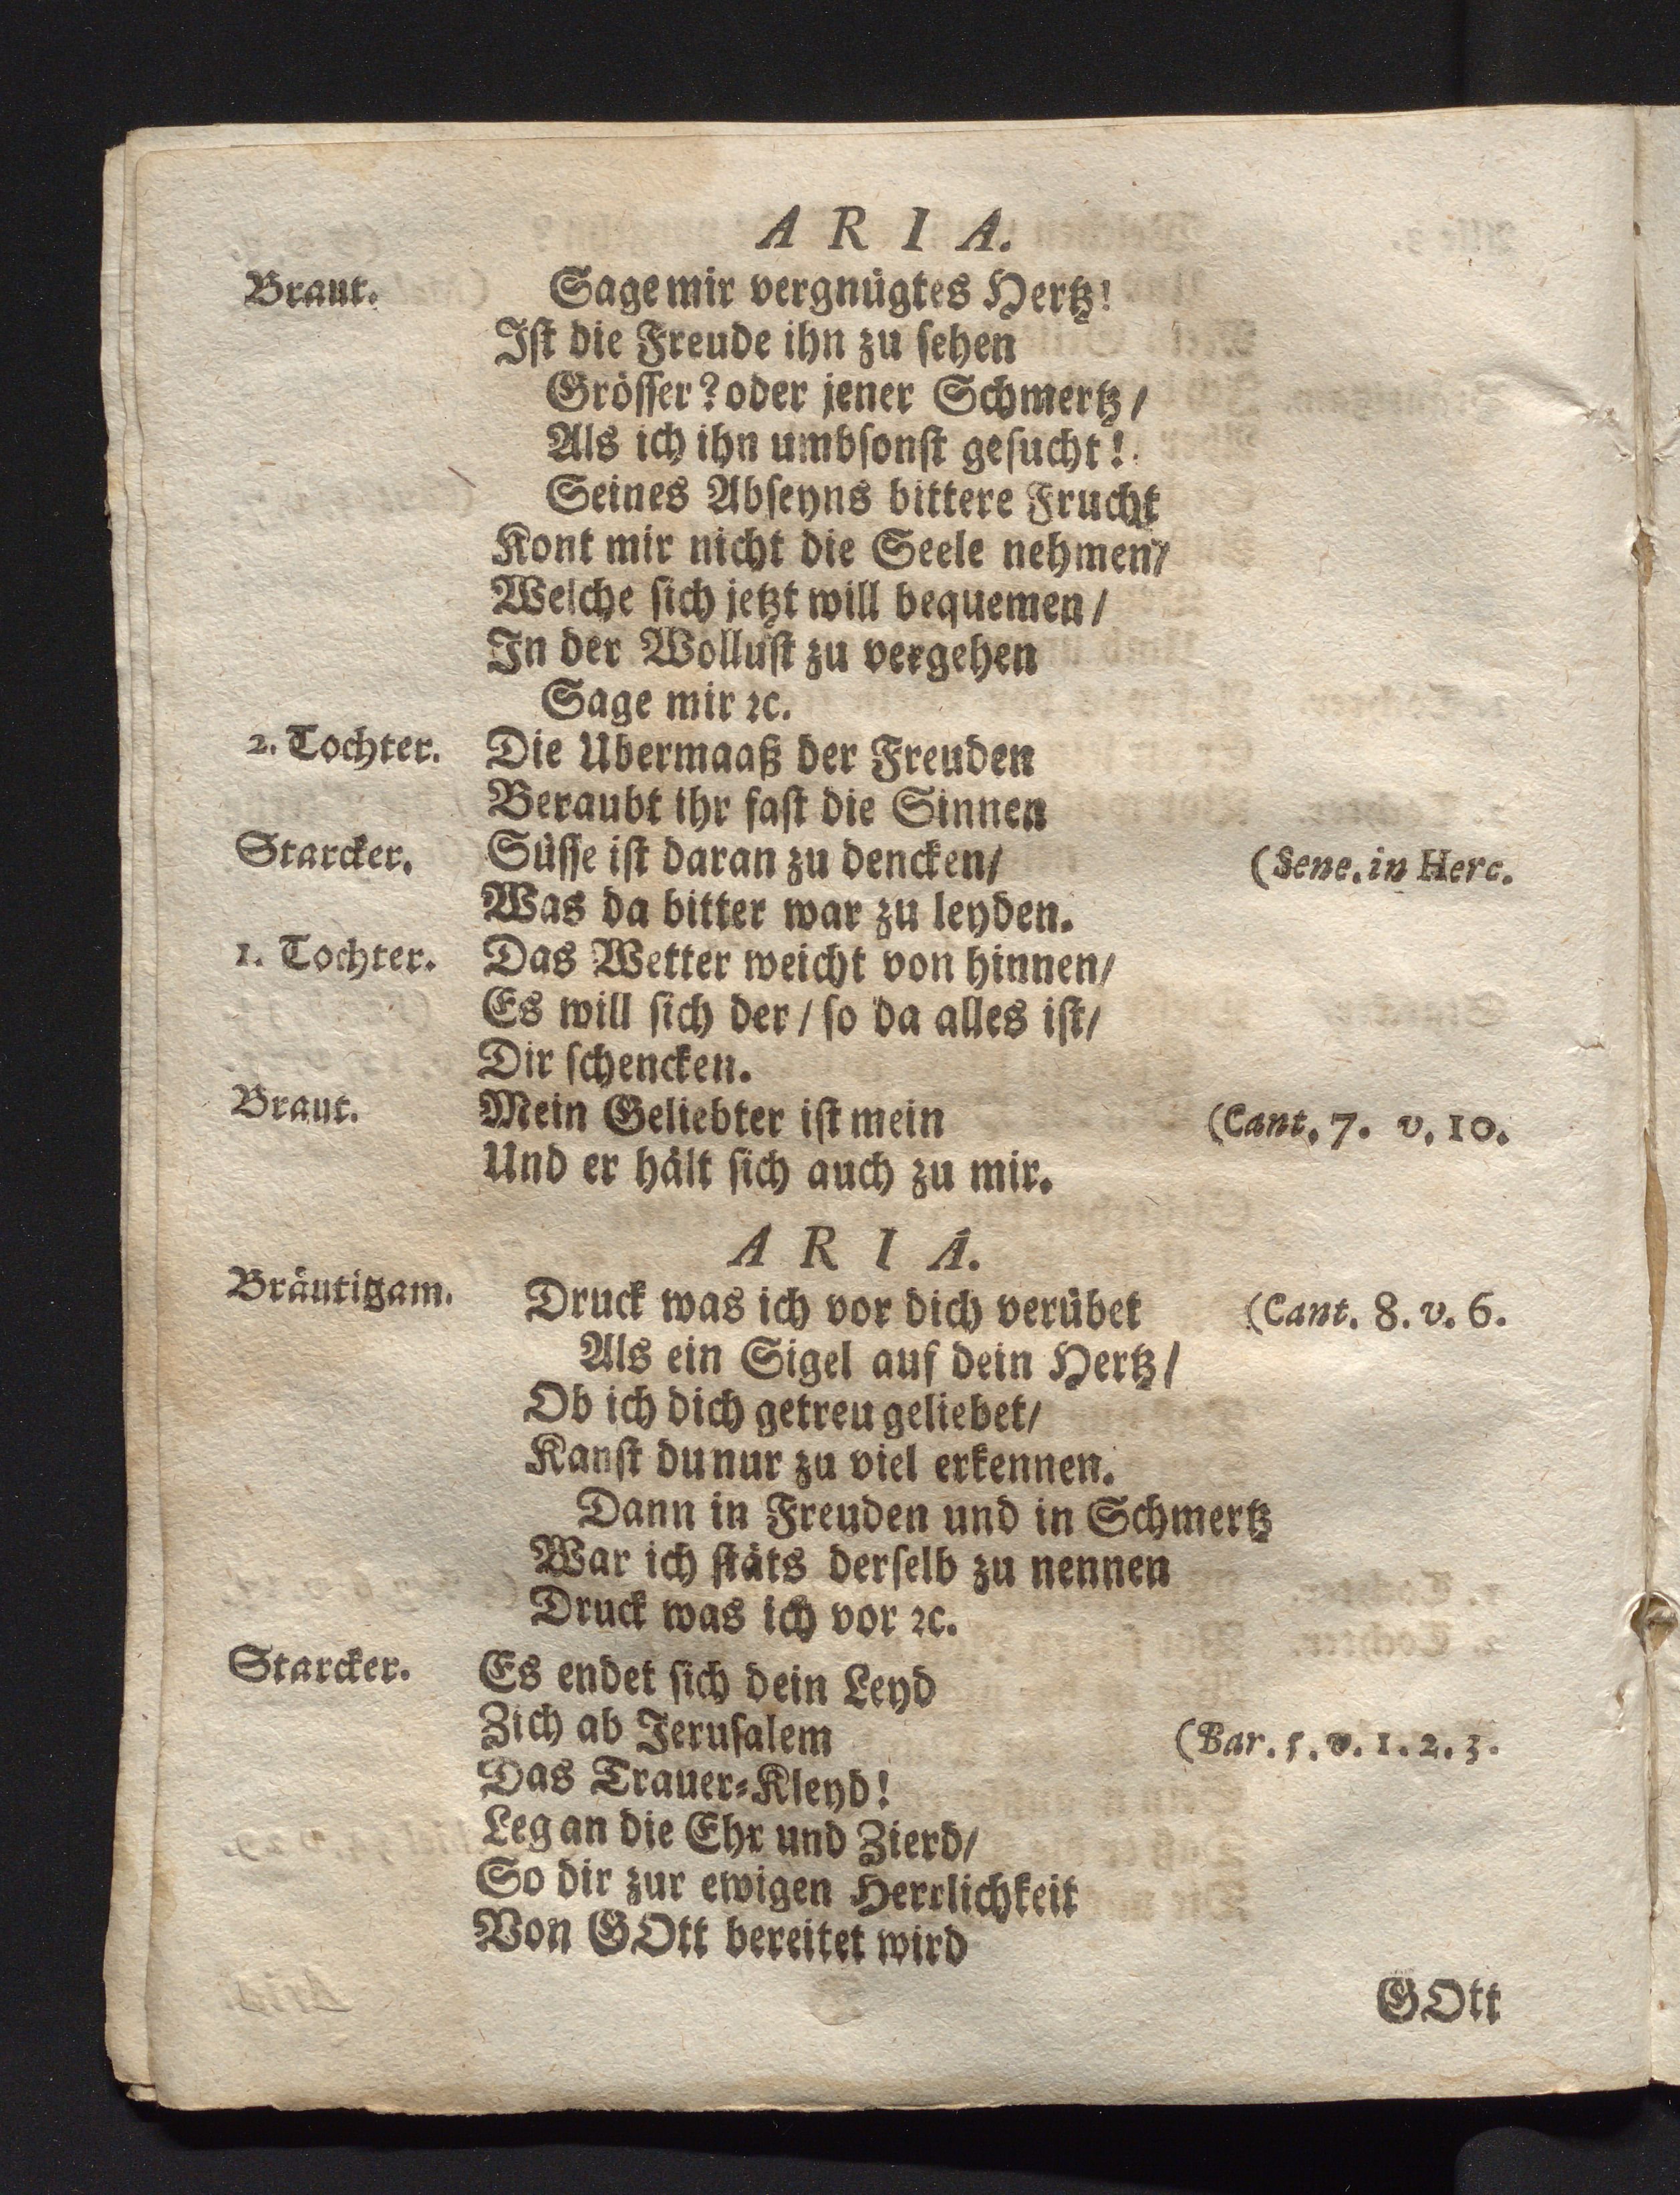 ARIA.
Braut. Sage mir vergnügtes Hertz!
Ist die Freude ihn zu sehen
Grösser? oder jener Schmertz/
Als ich ihn umbsonst gesucht!
Seines Abseyns bittere Frucht
Kont mir nicht die Seele nehmen/
Welche sich jetzt will bequemen/
In der Wollust zu vergehen
Sage mir ꝛc.
2. Tochter. Die Ubermaaß der Freuden
Beraubt ihr fast die Sinnen
Starcker. Süsse ist daran zu dencken/ (Sene. in Herc.
Was da bitter war zu leyden.
1. Tochter. Das Wetter weicht von hinnen/
Es will sich der / so da alles ist/
Dir schencken.
Braut. Mein Geliebter ist mein (Cant. 7. v. 10.
Und er hält sich auch zu mir.
ARIA.
Bräutigam. Druck was ich vor dich verübet (Cant. 8. v. 6.
Als ein Sigel auf dein Hertz/
Ob ich dich getreu geliebet/
Kanst du nur zu viel erkennen.
Dann in Freuden und in Schmertz
War ich stäts derselb zu nennen
Druck was ich vor ꝛc.
Starcker. Es endet sich dein Leyd
Zich ab Jerusalem (Bar. 5. v. 1. 2. 3.
Das Trauer-Kleyd!
Leg an die Ehr und Zierd/
So dir zur ewigen Herrlichkeit
Von GOtt bereitet wird
GOtt